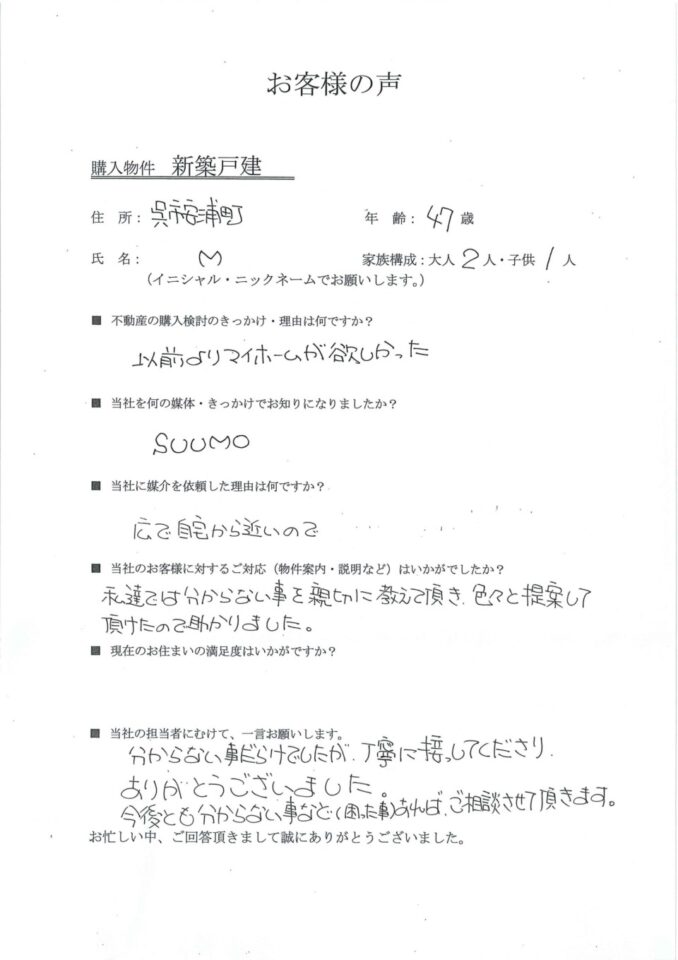 お客様の声
購入物件 新築戸建
住 所： 呉市安浦町 年 齢： 47 歳
氏 名： M 家族構成：大人 2 人・子供 1 人
（イニシャル・ニックネームでお願いします。）
■ 不動産の購入検討のきっかけ・理由は何ですか？
以前よりマイホームが欲しかった
■ 当社を何の媒体・きっかけでお知りになりましたか？
SUUMO
■ 当社に媒介を依頼した理由は何ですか？
広で自宅から近いので
■ 当社のお客様に対するご対応（物件案内・説明など）はいかがでしたか？
私達では分からない事を親切に教えて頂き、色々と提案して
頂けたので助かりました。
■ 現在のお住まいの満足度はいかがですか？
■ 当社の担当者にむけて、一言お願いします。
分からない事だらけでしたが、丁寧に接っしてくださり、
ありがとうございました。
今後とも分からない事など(困った事)あれば、ご相談させて頂きます。
お忙しい中、ご回答頂きまして誠にありがとうございました。